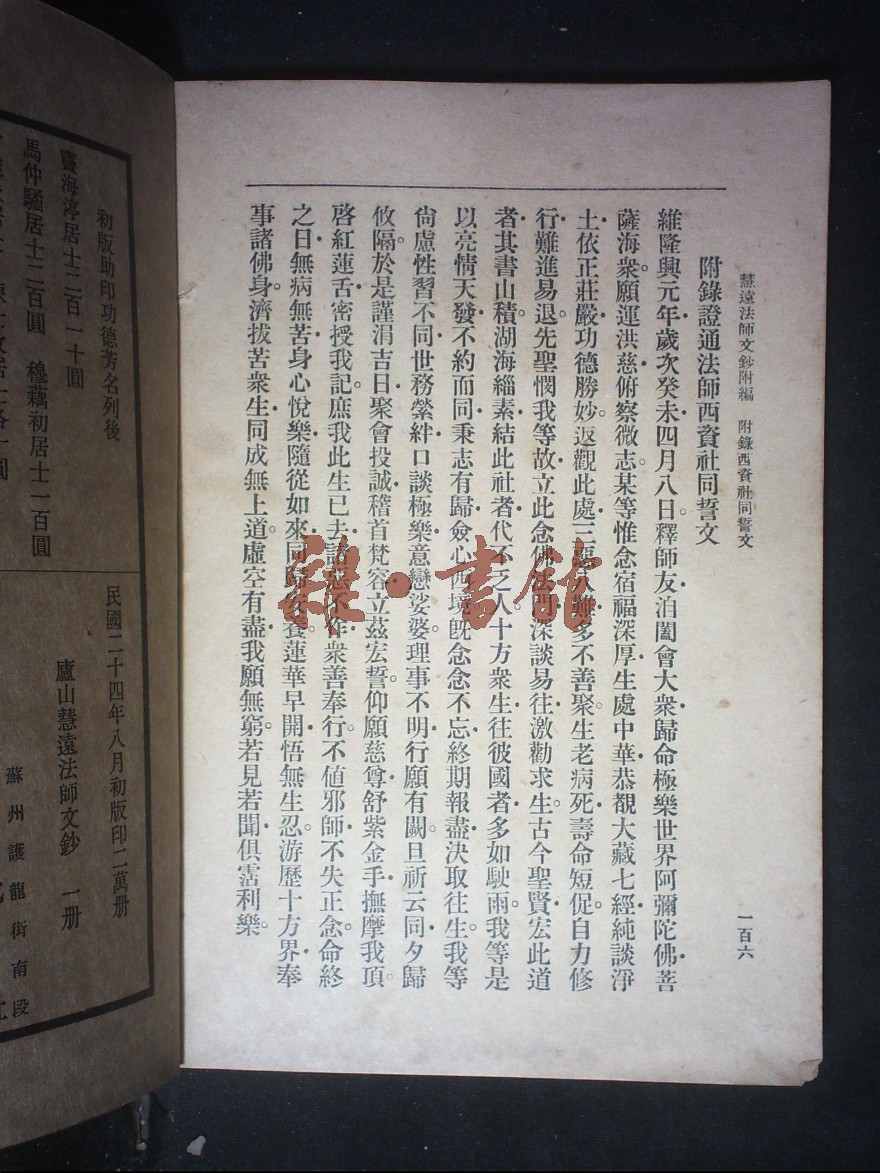 慧遠法師文鈔附編　附錄西資社同誓文
一百六
附錄證通法師西資社同誓文
維隆興元年歲次癸未四月八日釋師友洎闔會大衆歸命極樂世界阿彌陀佛菩
薩海衆願運洪慈俯察微志。某等惟念宿福深厚生處中華恭覩大藏七經純談淨
土依正莊嚴功德勝妙。返觀此處三惡八難多不善聚。生老病死壽命短促自力修
行難進易退先聖憫我等故立此念佛法門深談易往激勸求生。古今聖賢宏此道
者其書山積。湖海緇素結此社者代不乏人十方衆生往彼國者多如駛雨。我等是
以亮情天發不約而同秉志有歸僉心西境旣念念不忘終期報盡決取往生。我等
尙慮性習不同世務縈絆口談極樂意戀娑婆。理事不明行願有闕。旦祈云同夕歸
攸隔。於是謹涓吉日聚會投誠稽首梵容立茲宏誓。仰願慈尊舒紫金手撫摩我頂。
啓紅蓮舌密授我記。庶我此生已去諸惡不作衆善奉行。不値邪師不失正念。命終
之日無病無苦身心悅樂隨從如來同歸安養。蓮華早開悟無生忍。游歷十方界奉
事諸佛身。濟拔苦衆生同成無上道。虛空有盡我願無窮。若見若聞俱霑利樂。
雜·書館
初版助印功德芳名列後
竇海渟居士二百一十圓
馬仲騸居士二百圓　穆藕初居士一百圓
民國二十四年八月初版印二萬册
廬山慧遠法師文鈔　一册
蘇州護龍街南段